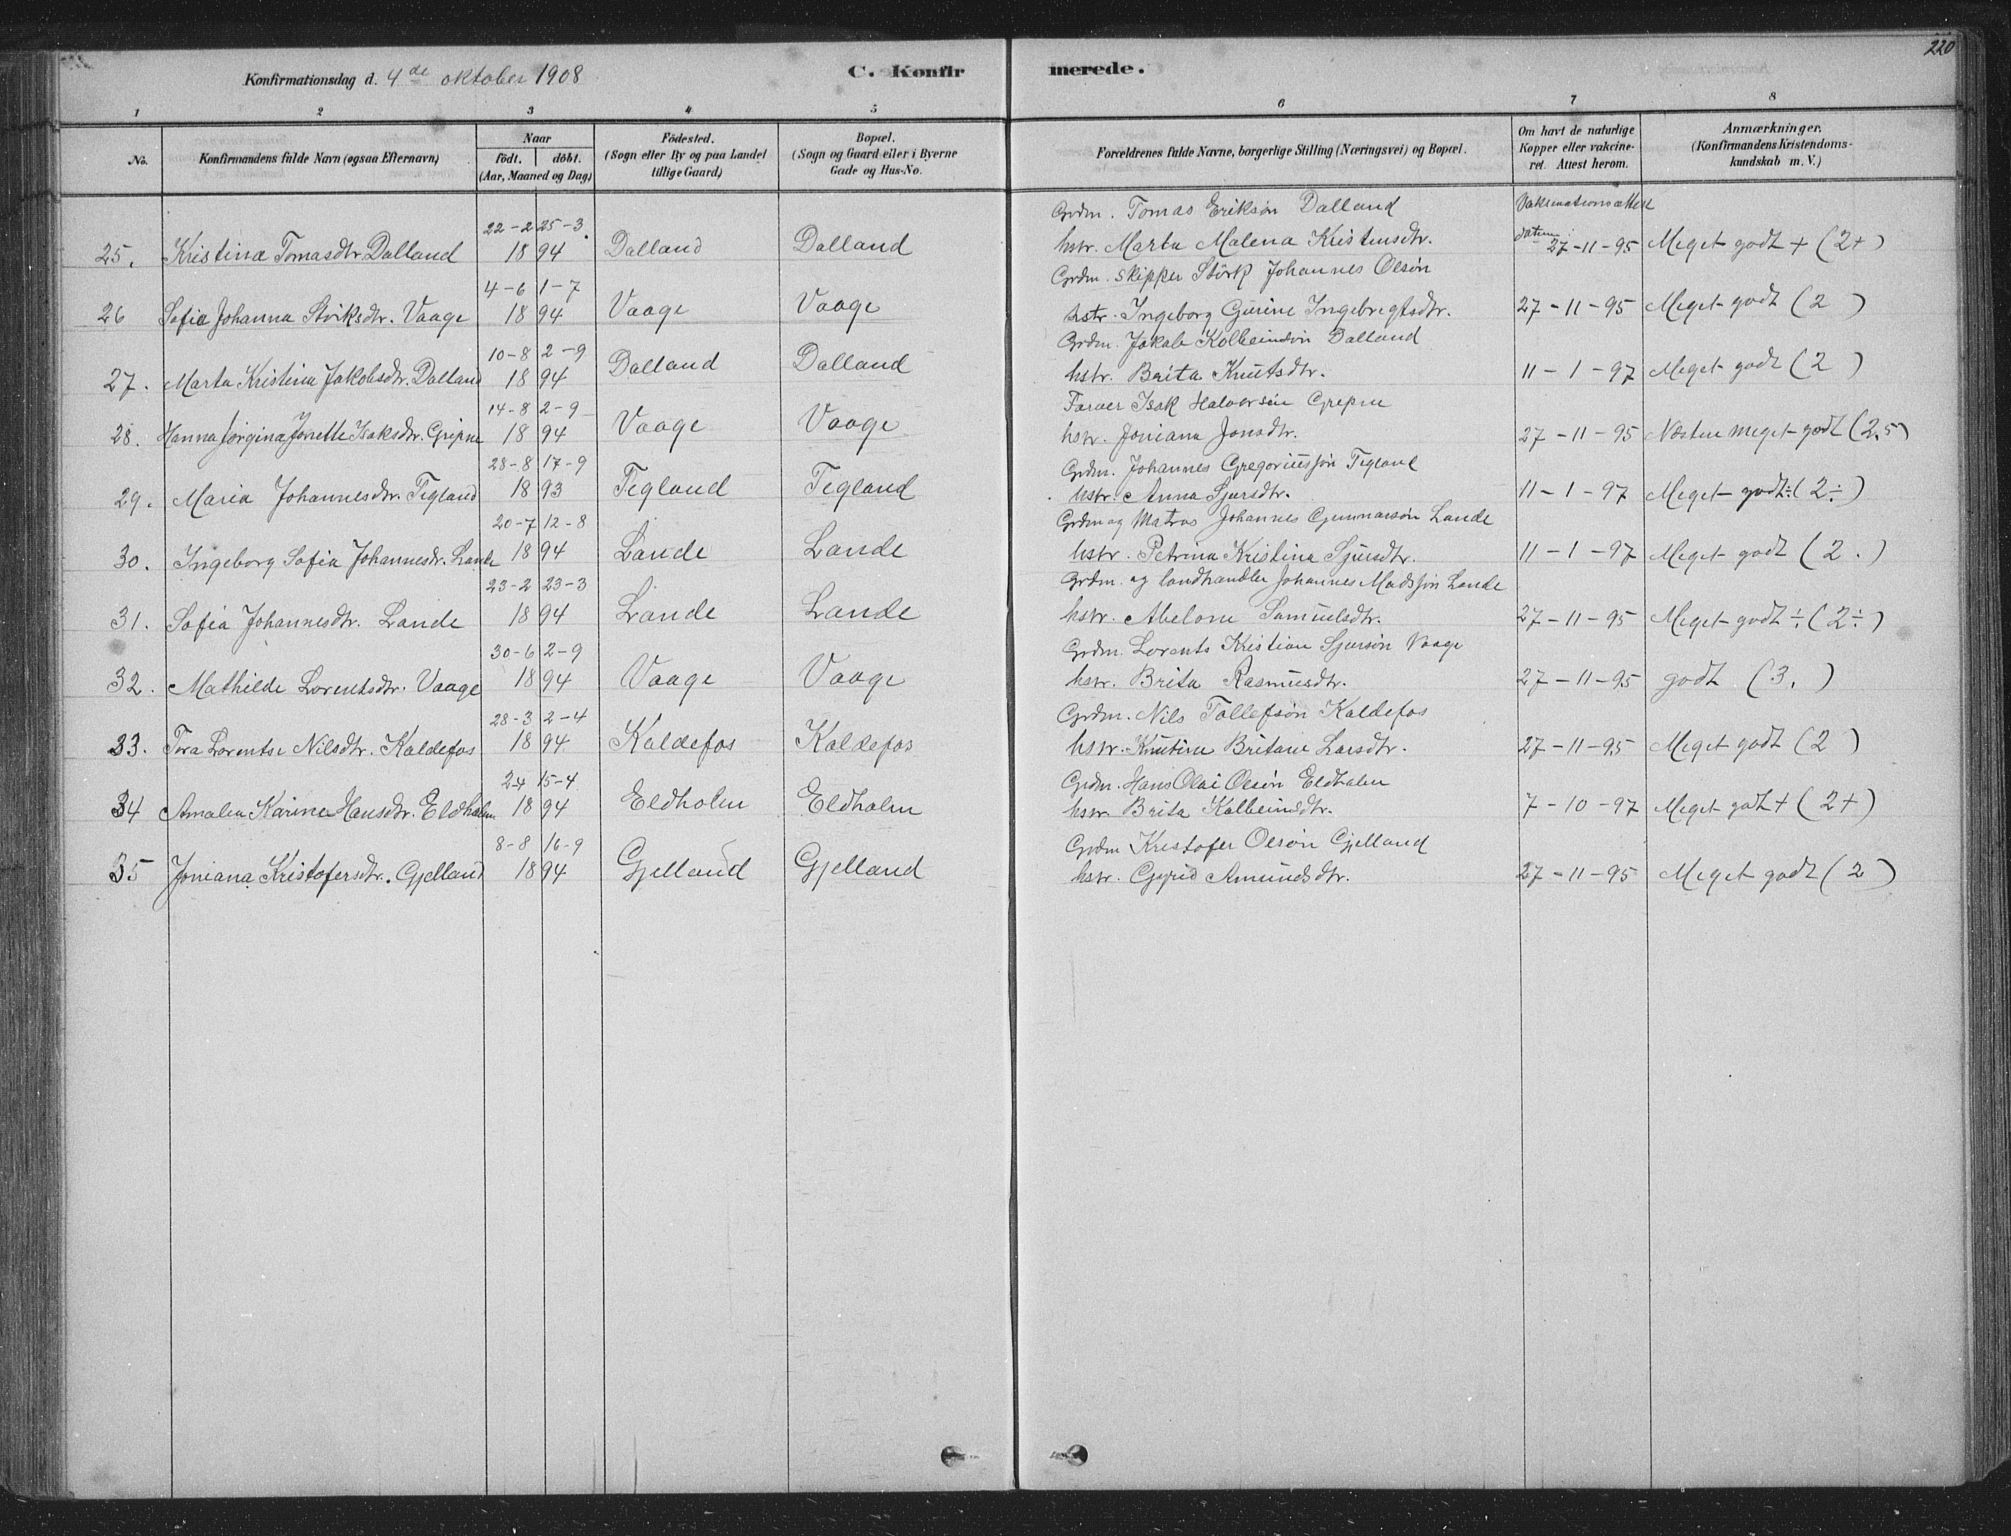 220
Konfirmationsdag d. 4de oktober 1908
C. Konfir merede.
1 2 3 4 5 6 7 8
No.
Konfirmandens fulde Navn (ogsaa Efternavn)
Naar
födt. döbt.
(Aar, Maaned og Dag)
Födested.
(Sogn eller By og paa Landet
tillige Gaard)
Bopæl.
(Sogn og Gaard eller i Byerne
Gade og Hus-No.
Forældrenes fulde Navne, borgerlige Stilling (Næringsvei) og Bopæl.
Om havt de naturlige
Kopper eller vakcine-
ret. Attest herom.
Anmærkninger.
(Konfirmandens Kristendoms-
kundskab m. V.)
22-2 25-3. Grdm. Tomas Eriksøn Dalland Vaksinationsattest
25. Kristina Tomasdtr. Dalland 18 94 Dalland Dalland hstr. Marta Malena Kristensdtr. datum: 27-11-95 Meget godt + (2+)
4-6 1-7 Grdm. skipper Störk Johannes Olsøn
26 Sofie Johanna Störksdtr. Vaage 18 94 Vaage Vaage hstr. Ingeborg Gurine Ingebregtsdtr. 27-11-95 Meget godt (2)
10-8 2-9 Grdm. Jakob Kolbeinsøn Dalland
27. Marta Kristina Jakobsdtr. Dalland 18 94 Dalland Dalland hstr. Brita Knutsdtr. 11-1-97 Meget godt (2)
14-8 2-9 Farver Isak Halvorsen Grepne
28. Hanna Jørgina Jonette Isaksdtr. Grepne 18 94 Vaage Vaage hstr. Joniana Jonsdtr. 27-11-95 Næsten meget godt (2,5)
28-8 17-9 Grdm. Johannes Gregoriussøn Tegland
29. Maria Johannesdtr. Tegland 18 93 Tegland Tegland hstr. Anna Sjursdtr. 11-1-97 Meget godt ÷ (2÷)
20-7 12-8 Grdm og Matros Johannes Gunnarsøn Lande
30. Ingeborg Sofia Johannesdtr. Lande 18 94 Lande Lande hstr. Petrina Kristina Sjursdtr. 11-1-97 Meget godt (2.)
23-2 23-3 Grdm. og landhandler Johannes Madssøn Lande
31. Sofia Johannesdtr. Lande 18 94 Lande Lande hstr. Abelone Samuelsdtr. 27-11-95 Meget godt ÷ (2÷)
30-6 2-9 Grdm. Lorents Kristian Sjursøn Vaage
32. Mathilde Lorentsdtr. Vaage 18 94 Vaage Vaage hstr. Brita Rasmusdtr. 27-11-95 godt (3.)
28-3 2-4 Grdm. Nils Tollefsøn Kaldefos
33. Tora Lorentse Nilsdtr. Kaldefos 18 94 Kaldefos Kaldefos hstr. Knutine Britane Larsdtr. 27-11-95 Meget godt (2)
2-4 15-4 Grdm. Hans Olai Olsøn Eldholm
34 Amalia Karine Hansdtr. Eldholm 18 94 Eldholm Eldholm hstr Brita Kolbeinsdtr. 7-10-97 Meget godt + (2+)
8-8 16-9 Grdm Kristofer Olsøn Gjelland
35 Joniana Kristofersdtr. Gjelland 18 94 Gjelland Gjelland hstr. Gyrid Amundsdtr. 27-11-95 Meget godt (2)